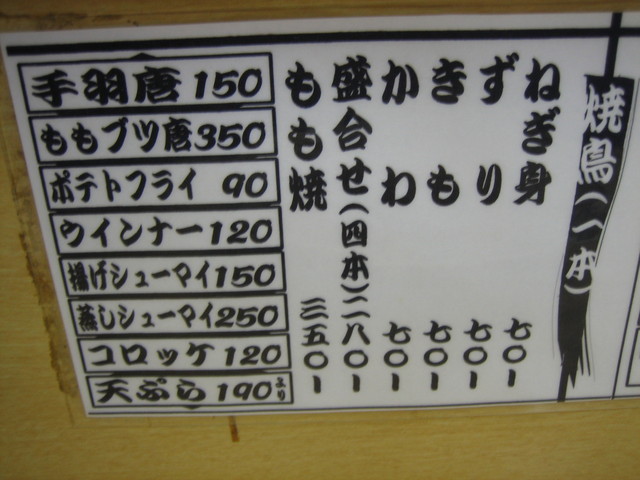 焼鳥(一本)
ねぎ身 七〇ー
ずり 七〇ー
きも 七〇ー
かわ 七〇ー
盛合せ(四本)二八〇ー
もも焼 三五〇ー
手羽唐 150
ももブツ唐 350
ポテトフライ 90
ウインナー 120
揚げシューマイ 150
蒸しシューマイ 250
コロッケ 120
天ぷら 190より